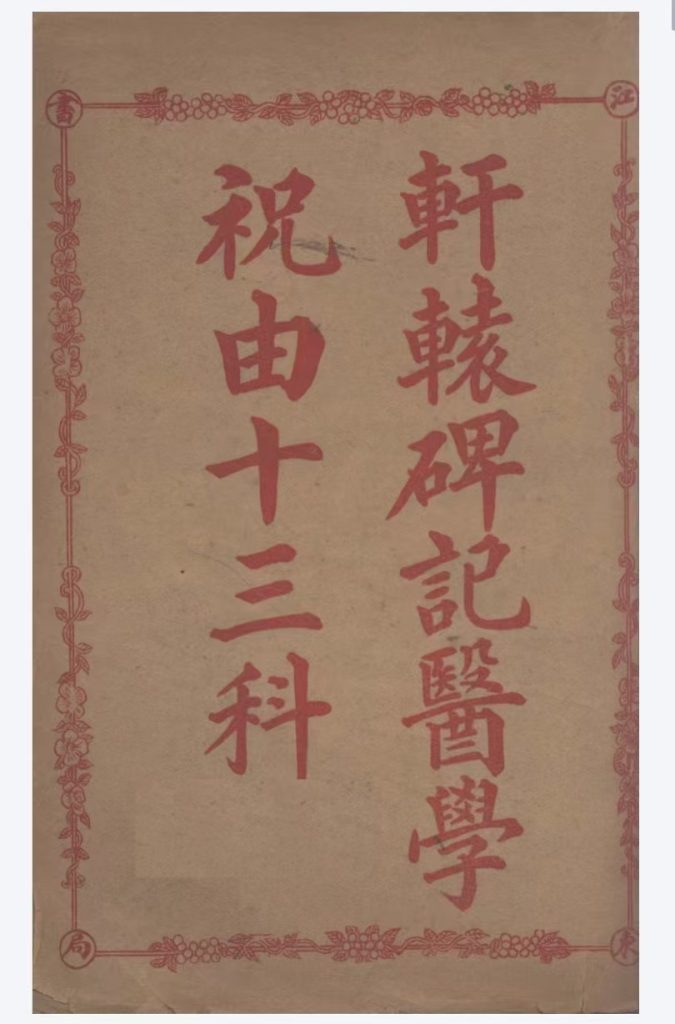 軒轅碑記醫學
祝由十三科
江
東
書
局